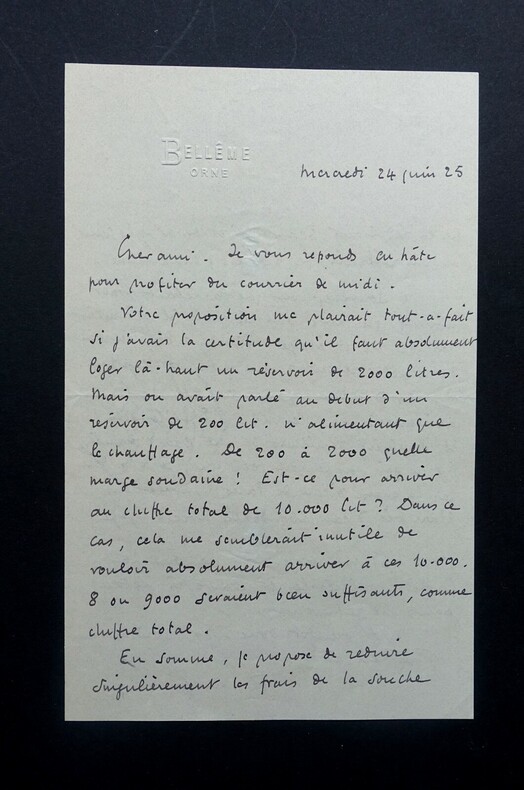 BELLÊME
ORNE
Mercredi 24 juin 25
Cher ami. Je vous reponds en hâte
pour profiter du courrier de midi.
Votre proposition me plairait tout-a-fait
si j'avais la certitude qu'il faut absolument
loger là-haut un réservoir de 2000 litres.
Mais on avait parlé au debut d'un
réservoir de 200 lit. n'alimentant que
le chauffage. De 200 à 2000 quelle
marge soudaine ! Est-ce pour arriver
au chiffre total de 10.000 lit ? Dans ce
cas, cela me semblerait inutile de
vouloir absolument arriver à ces 10.000.
8 ou 9000 seraient bien suffisants, comme
chiffre total.
En somme, je propose de reduire
singulièrement les frais de la souche